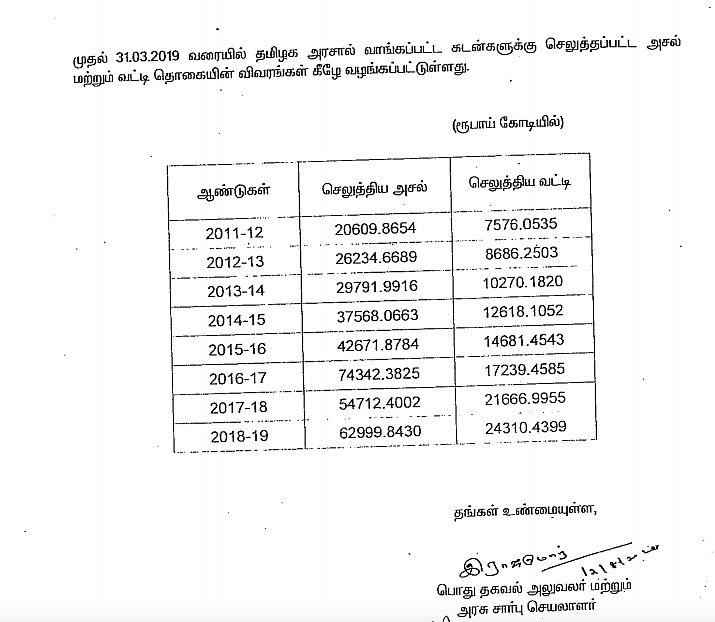 முதல் 31.03.2019 வரையில் தமிழக அரசால் வாங்கப்பட்ட கடன்களுக்கு செலுத்தப்பட்ட அசல்
மற்றும் வட்டி தொகையின் விவரங்கள் கீழே வழங்கப்பட்டுள்ளது.
(ரூபாய் கோடியில்)
ஆண்டுகள் செலுத்திய அசல் செலுத்திய வட்டி
2011-12 20609.8654 7576.0535
2012-13 26234.6689 8686.2503
2013-14 29791.9916 10270.1820
2014-15 37568.0663 12618.1052
2015-16 42671.8784 14681.4543
2016-17 74342.3825 17239.4585
2017-18 54712.4002 21666.9955
2018-19 62999.8430 24310.4399
தங்கள் உண்மையுள்ள,
பொது தகவல் அலுவலர் மற்றும்
அரசு சார்பு செயலாளர்